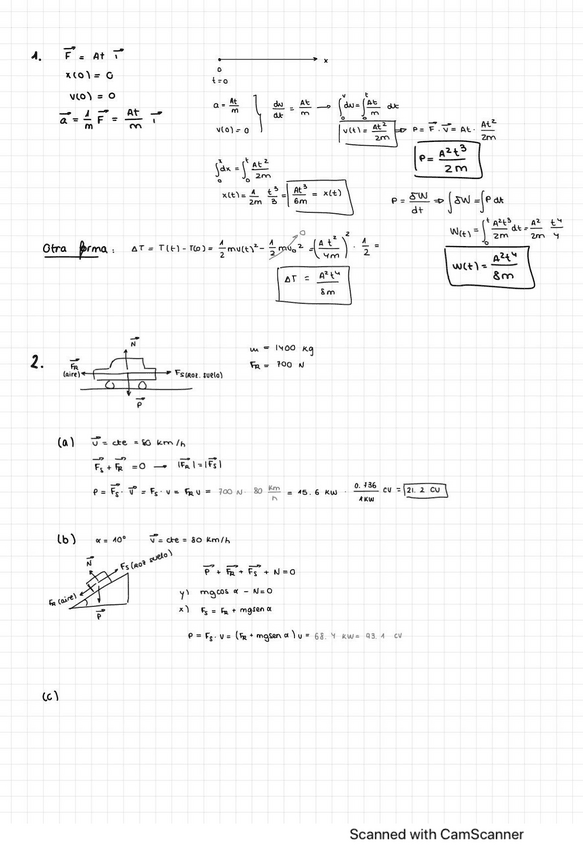 1. F⃗ = At i⃗
x(0) = 0
v(0) = 0
a⃗ = 1/m F⃗ = At/m i⃗
0 x
t=0
a = At/m
v(0) = 0
dv/dt = At/m → ∫₀ᵛ dv = ∫₀ᵗ At/m dt
v(t) = At²/2m ⇒ P = F⃗ · v⃗ = At · At²/2m
P = A²t³/2m
∫₀ˣ dx = ∫₀ᵗ At²/2m
x(t) = 1/2m t³/3 = At³/6m = x(t)
P = δW/dt ⇒ ∫δW = ∫P dt
W(t) = ∫₀ᵗ A²t³/2m dt = A²/2m t⁴/4
W(t) = A²t⁴/8m
Otra forma: ΔT = T(t) - T(0) = 1/2 mv(t)² - 1/2 mv₀² 0 = (A t²/4m)² · 1/2 =
ΔT = A²t⁴/8m
2. N⃗
F⃗R (aire)
Fs (roz. suelo)
P⃗
m = 1400 kg
FR = 700 N
(a) v⃗ = cte = 80 km/h
F⃗s + F⃗R = 0 → |F⃗R| = |F⃗s|
P = F⃗s · v⃗ = Fs · v = FR v = 700 N · 80 km/h = 15.6 kW · 0.736/1kW CV = 21.2 CV
(b) α = 10° v⃗ = cte = 80 km/h
N⃗
Fs (roz suelo)
FR (aire)
P⃗
P⃗ + F⃗R + F⃗s + N = 0
y) mgcos α - N = 0
x) Fs = FR + mgsen α
P = Fs · v = (FR + mgsen α) v = 68.4 kW = 93.1 CV
(c)
Scanned with CamScanner